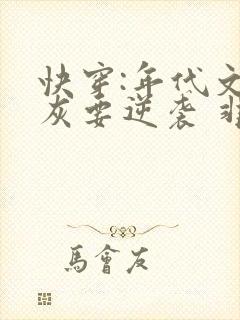 快穿:年代文
灰要逆袭 非
馬會友